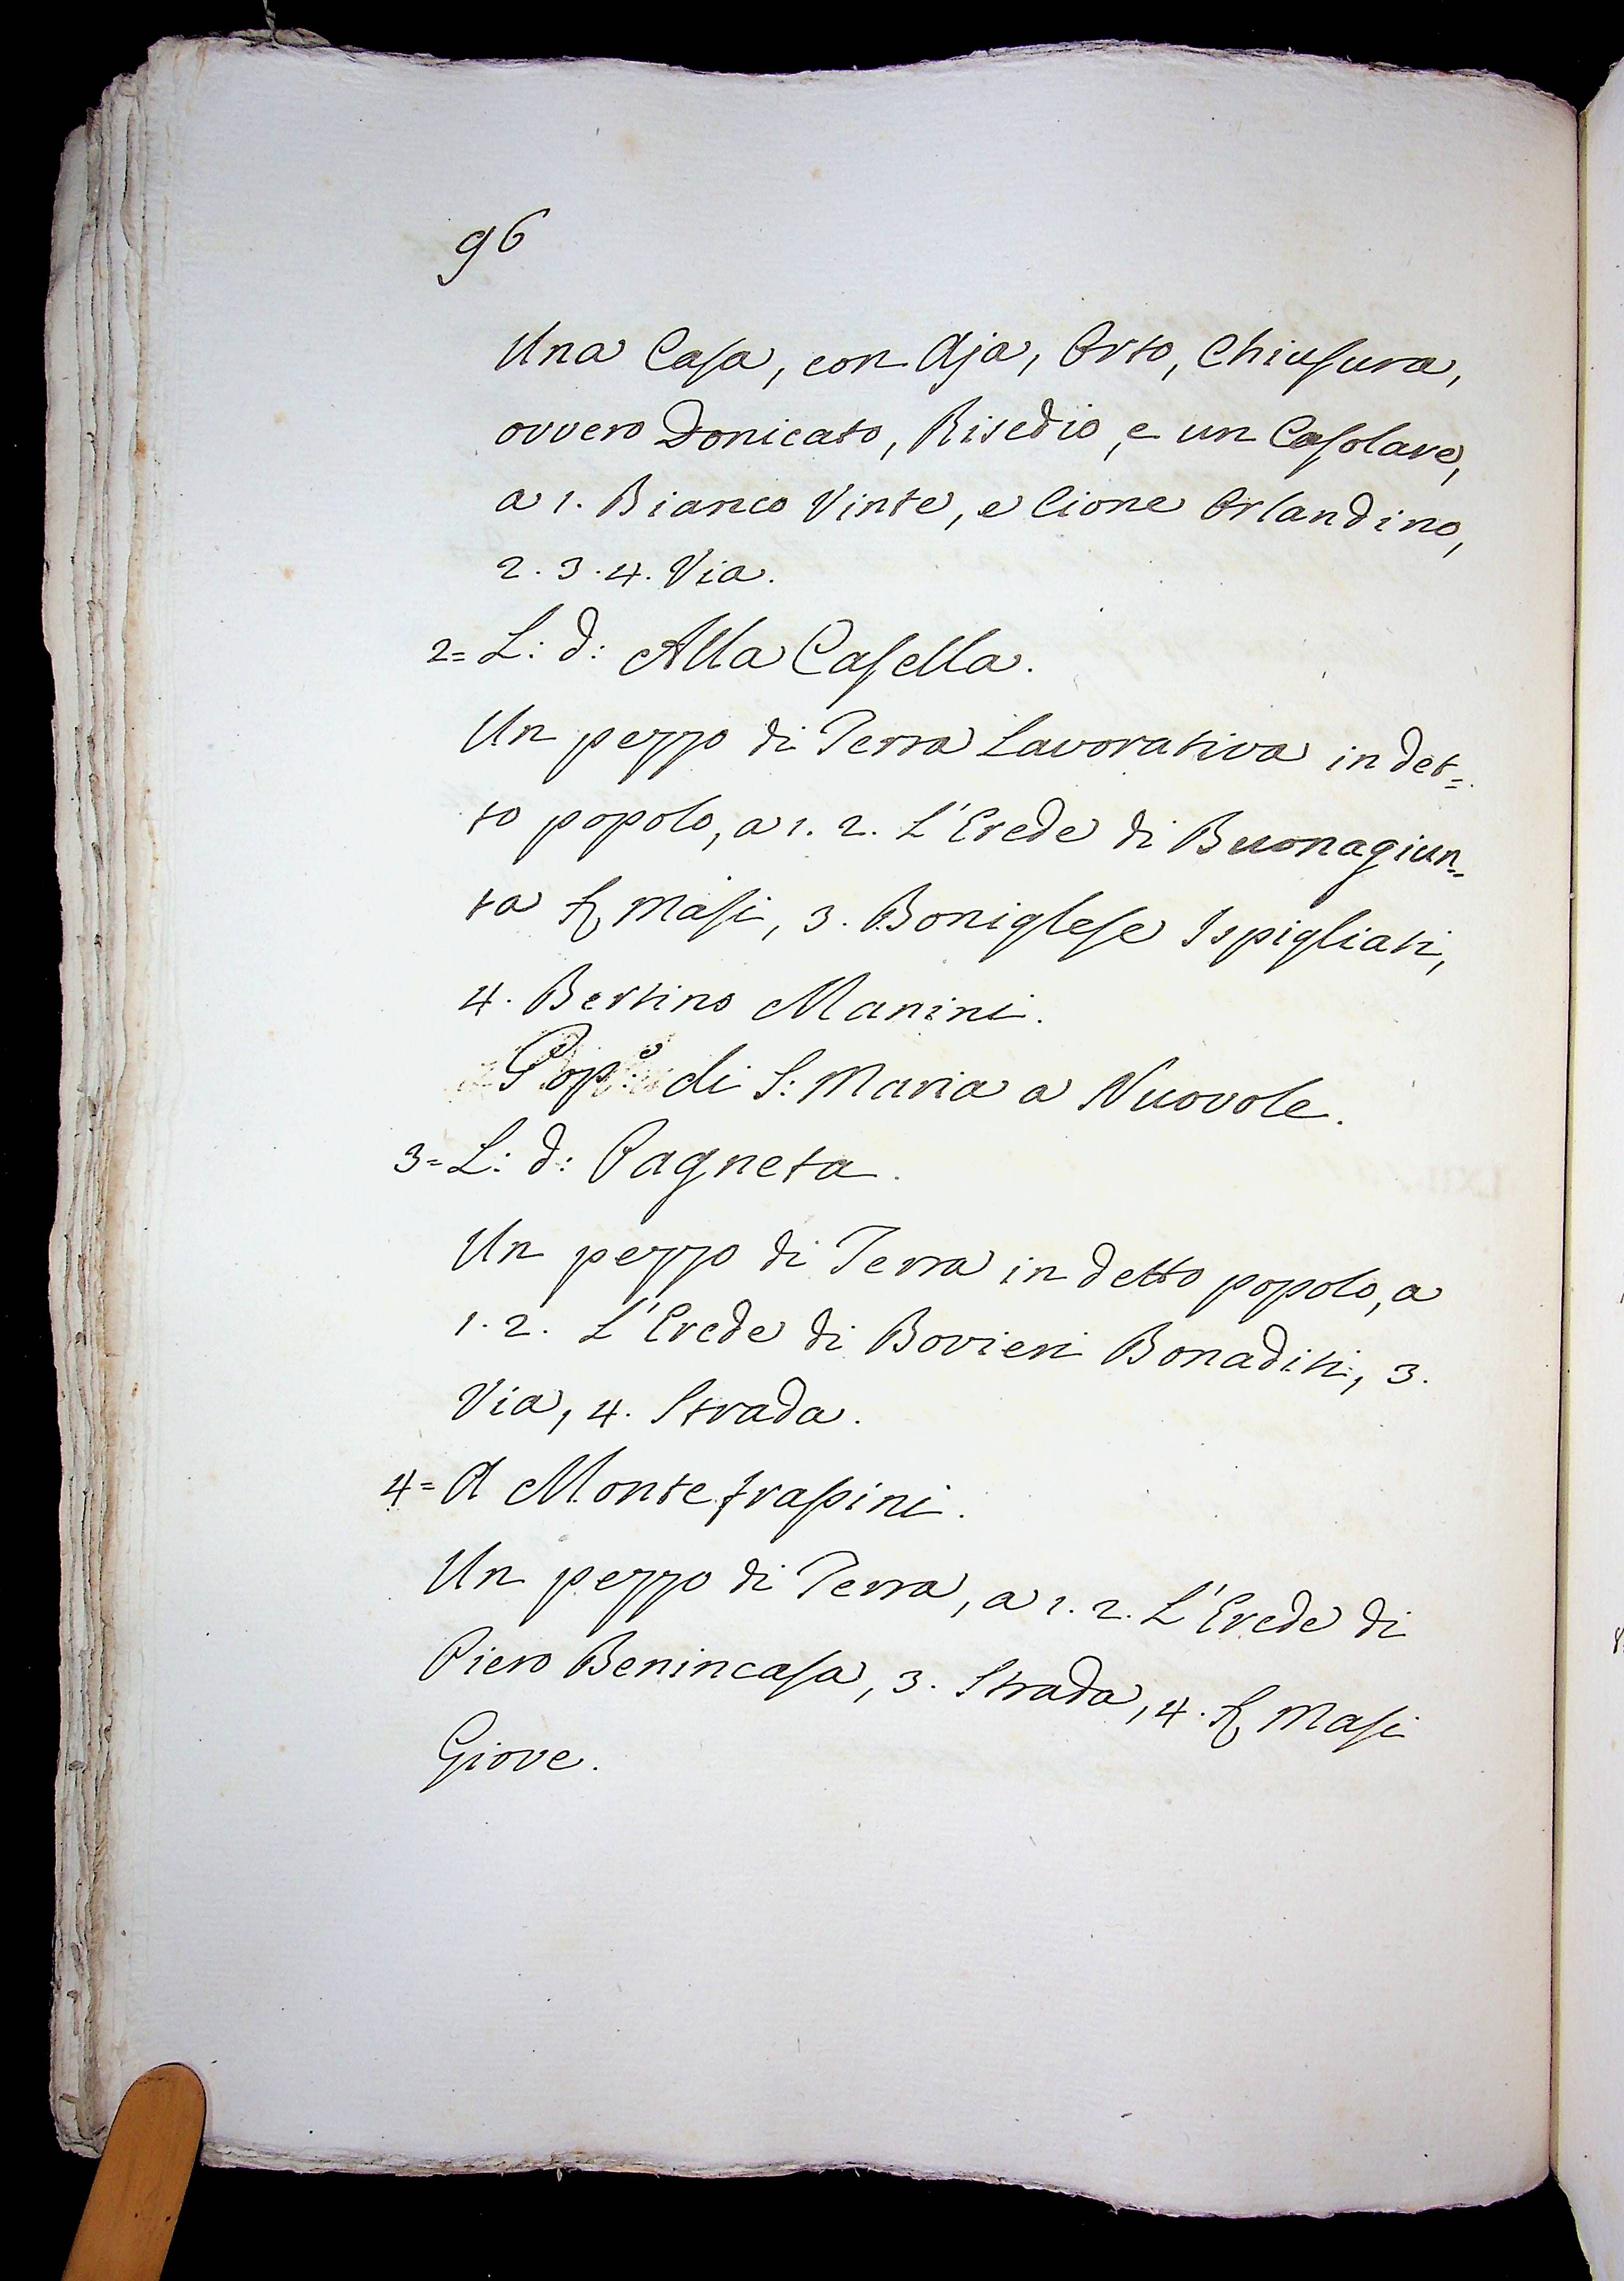 96
Una Casa, con Aja, Orto, Chiusura,
ovvero Donicato, Risedio, e un Casolare,
a 1. Bianco Vinte, e Cione Orlandino,
2. 3. 4. Via.
2= L: d: Alla Casella.
Un pezzo di Terra Lavorativa in det=
to popolo, a 1. 2. L'Erede di Buonagiun=
ta Masi, 3. Boniglese Ispigliati,
4. Bertino Manini.
Pop:o di S: Maria a Nuovole.
3= L: d: Pagneta.
Un pezzo di Terra in detto popolo, a
1. 2. L'Erede di Bovieri Bonaditi, 3.
Via, 4. Strada.
4= A Montefrassini.
Un pezzo di Terra, a 1. 2. L'Erede di
Piero Benincasa, 3. Strada, 4. Masi
Giove.